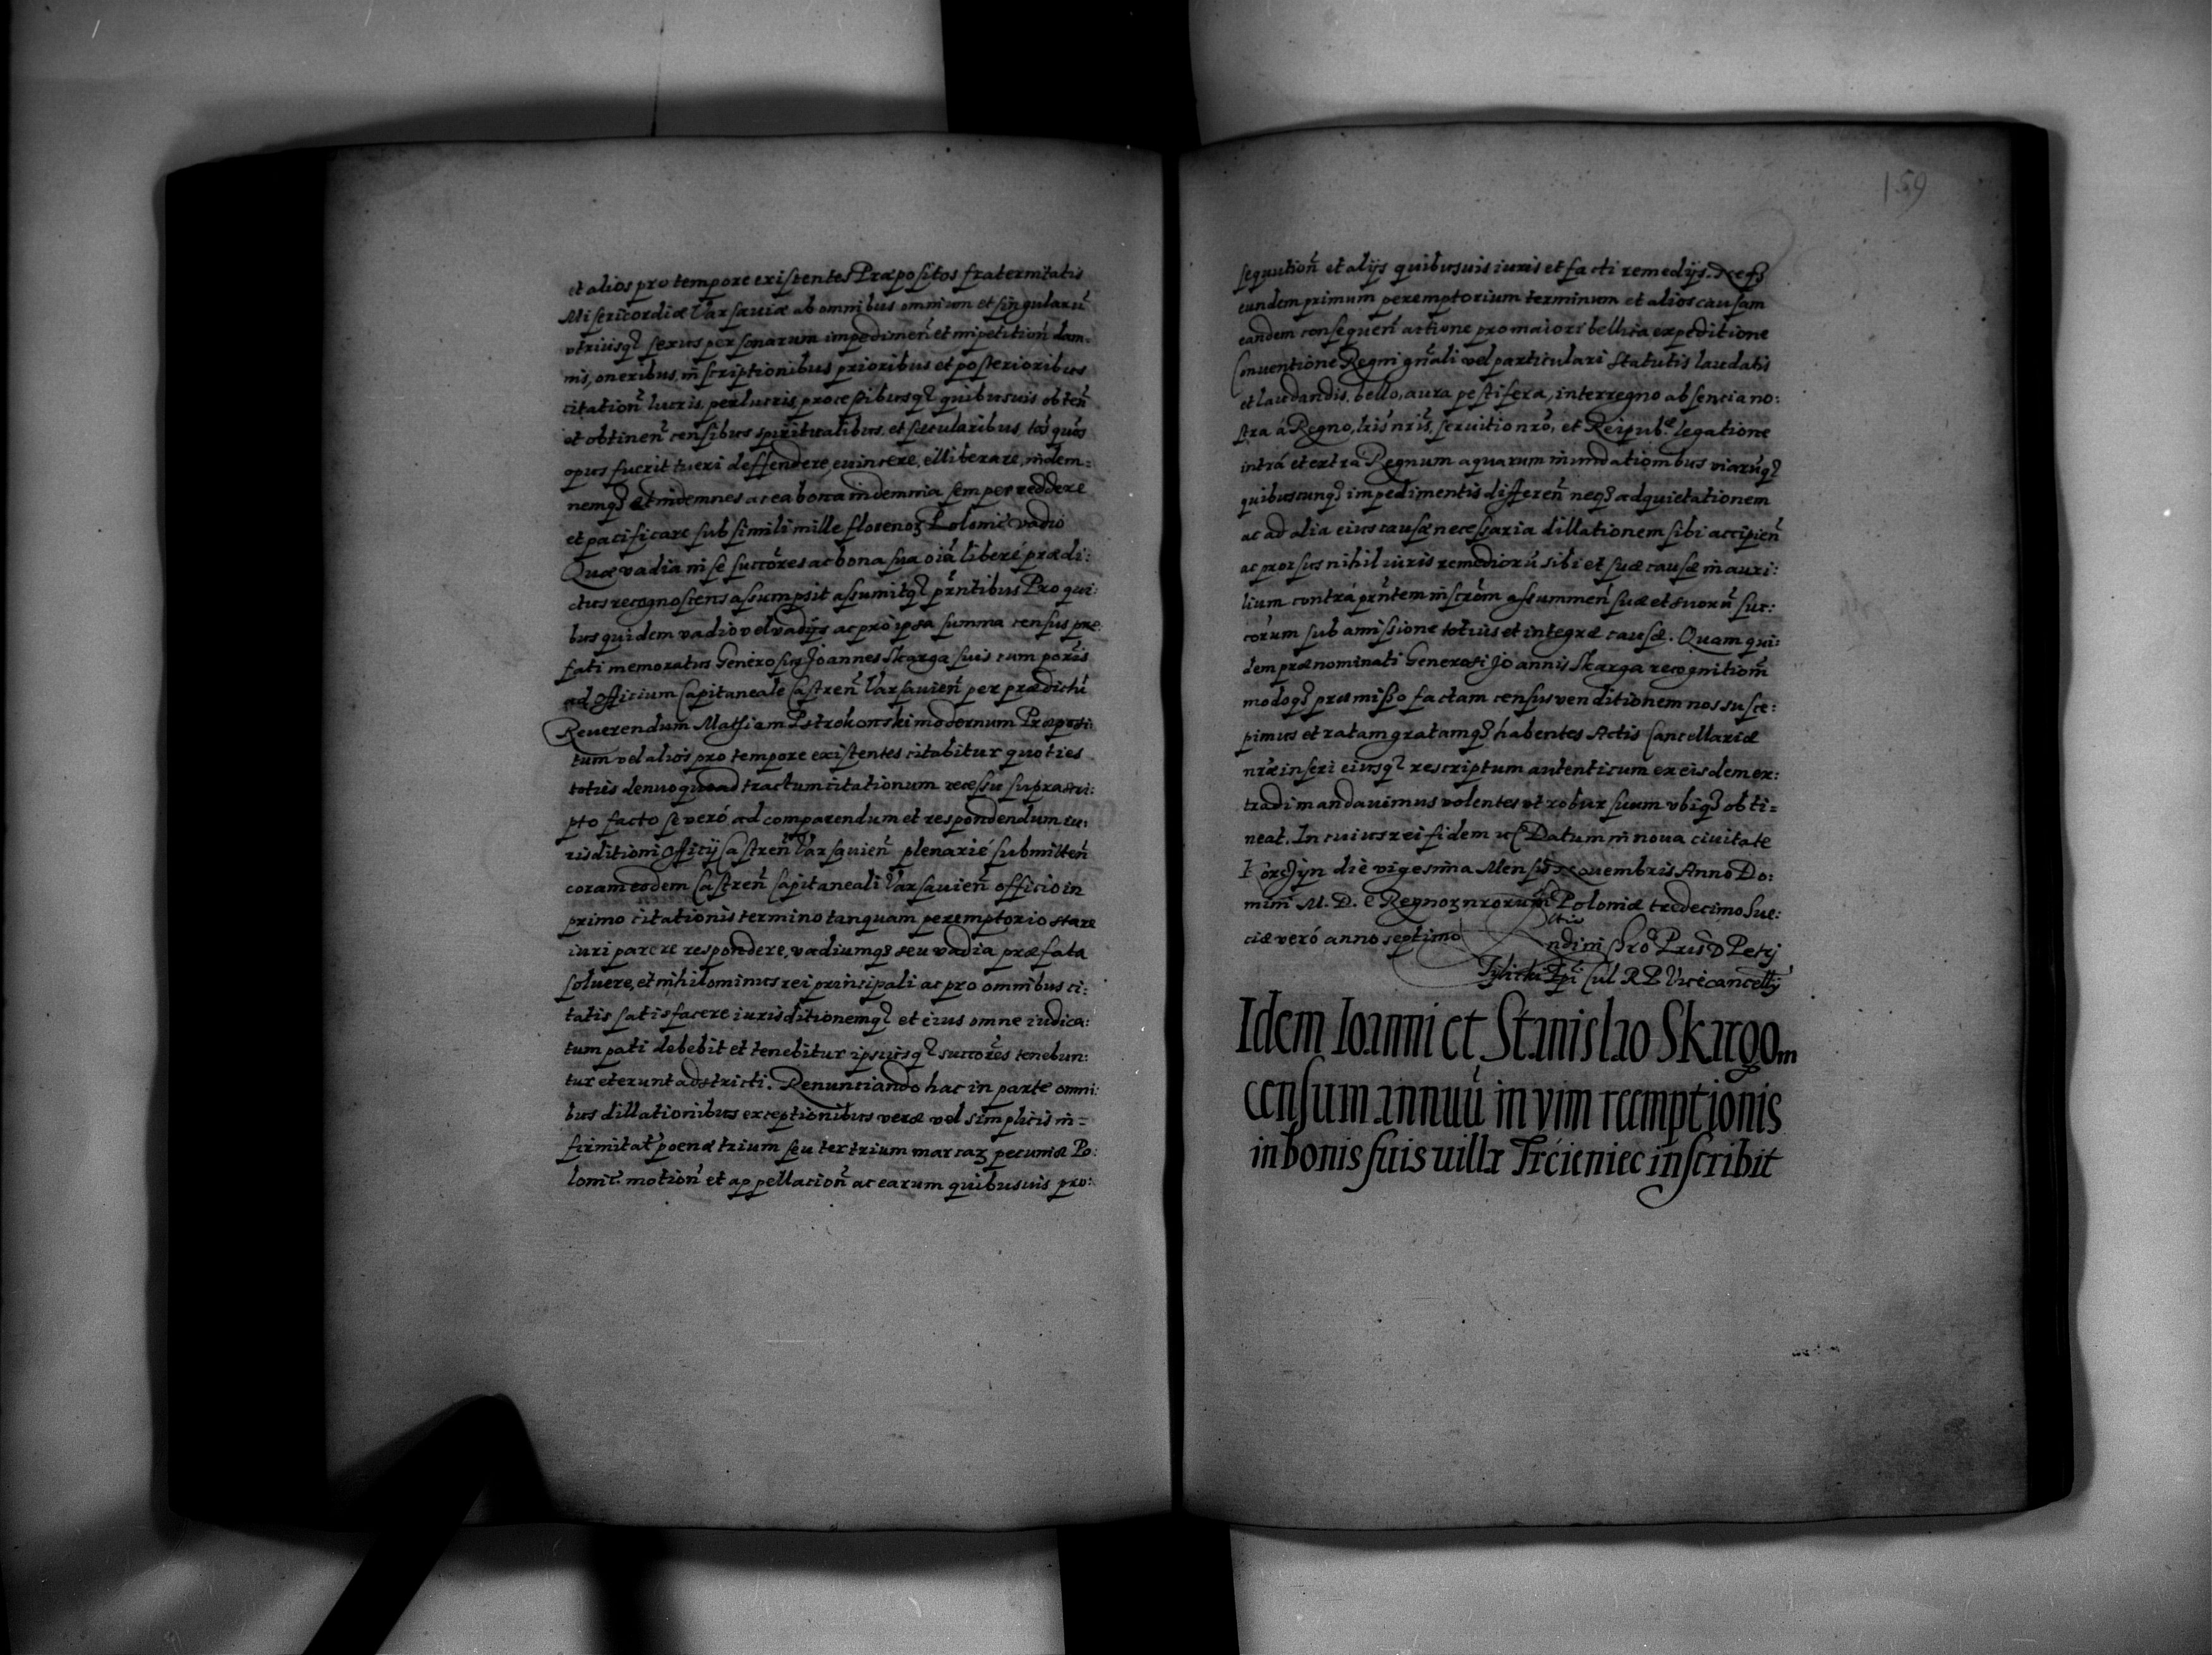 et alios pro tempore existentes Præpositos fraternitatis
Misericordiæ Varsaviæ ab omnibus omnium et singularũ
vtriusq̃ sexus personarum impedimen̄ et impetition̄ dam-
nis, oneribus, in̄scriptionibus prioribus et posterioribus
citation̄ lucris, perlucris, processibusq̃ quibusuis obten̄
et obtinen̄ censibus spiritualibus, et sæcularibus, tot̄ quot̄
opus fuerit tueri deffendere, euincere, elliberare, indem-
nemq̃ et indemnes ac ea bona indemnia semper reddere
et pacificare sub simili mille florenoꝝ Polonić vadio
Quæ vadia in se succōres ac bona sua oīa liberé prædi:
ctus recognoscens assumpsit assumitq̃ prn̄tibus Pro qui:
bus quidem vadio vel vadijs ac pro ipsa summa census præ
fati memoratus Generosus Joannes Skarga suis cum porīs
ad officium Capitaneale Castren̄ Varsauien̄ per prædictũ
Reuerendum Mathiam Pstrokonski modernum Præposi:
tum vel alios pro tempore existentes citabitur quoties
toties denuo quoad tractum citationum recessu suprascri:
pto facto se veró ad comparendum et respondendum iu:
risditioni Officij Castren̄ Varsauien̄ plenarié submitten̄
coram eodem Castren̄ Capitaneali Varsauien̄ officio in
primo citationis termino tanquam peremptorio stare
iuri parere respondere, vadiumq̃ seu vadia præfata
soluere, et nihilominus rei principali ac pro omnibus ci:
tatis satisfacere iurisditionemq̃ et eius omne iudica:
tum pati debebit et tenebitur ipsiusq̃ succōres tenebun:
tur et erunt adstricti. Renunciando hac in parte omni:
bus dillationibus exceptionibus veræ vel simplicis in-
firmitat̄ poenæ trium seu ter trium marcaꝝ pecuniæ Po:
lonić motion̄ et appellacion̄ ac earum quibusuis pro:
159
sequution̄ et alijs quibusuis iuris et facti remedijs. Neq̃
eundem primum peremptorium terminum et alios causam
eandem consequen̄ actione pro maiori bellica expeditione
Conuentione Regni gn̄ali vel particulari Statutis laudatis
et laudandis, bello, aura pestifera, interregno absencia no:
stra á Regno, lrīs nrīs, seruitio nrō, et Reipub. legatione
intrá et extra Regnum aquarum inundationibus viarũq̃
quibuscunq̃ impedimentis differen̄ neq̃ ad quietationem
ac ad alia eius causæ necessaria dillationem sibi accipien̄
ac prorsus nihil iuris remediorũ sibi et suæ causæ in auxi:
lium contrá prn̄tem inscrōm assummen̄ suæ et suorũ suc:
corum sub amissione totius et integræ causæ. Quam qui:
dem prænominati Generosi Joannis Skarga recognitiom̄
modoq̃ præmisso factam census venditionem nos susce:
pimus et ratam gratamq̃ habentes Actis Cancellariæ
nr̄æ inseri eiusq̃ rescriptum autenticum ex eisdem ex:
tradi mandauimus volentes vt robur suum vbiq̃ obti-
neat. In cuius rei fidem &c Datum in noua ciuitate
Korczyn die vigesima Mensis Nouembris Anno Do:
mini M. D. C Regnoꝝ nrorum Poloniæ tredecimo Sue:
ciæ veró anno septimo
Petrj
Tylicki Epi Cul R P Vicecancellij
Idem Ioanni et Stanislao Skargom
censum annuũ in vim reemptionis
in bonis suis villa Trćieniec inscribit